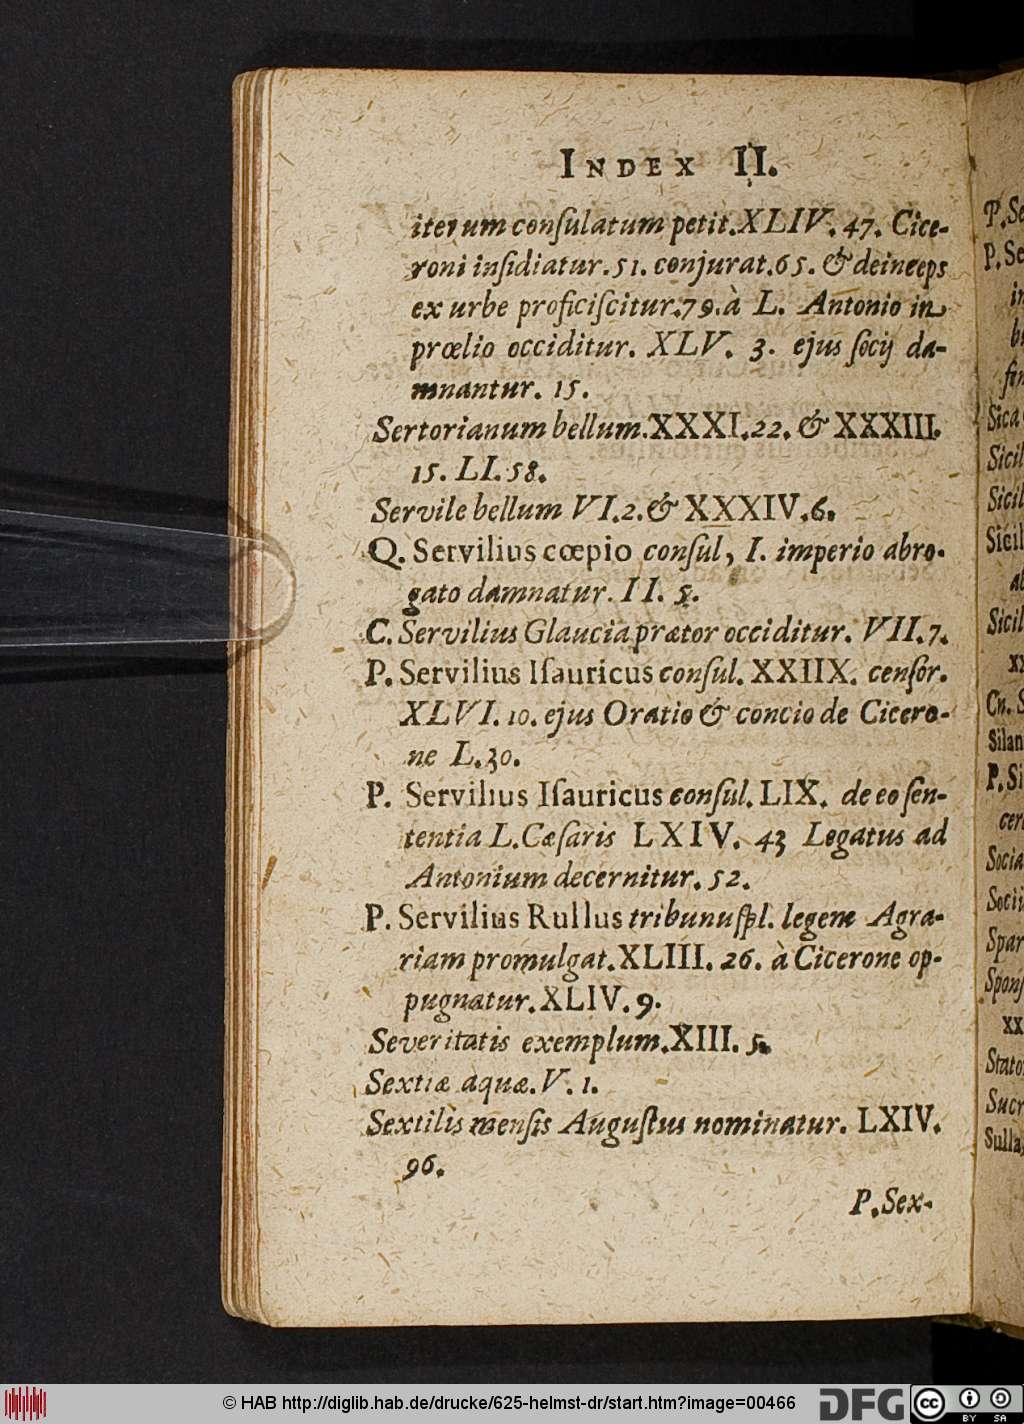 INDEX II.
iterum conſulatum petit. XLIV. 47. Cice-
roni inſidiatur. 51. conjurat. 65. & deinceps
ex urbe proficiſcitur. 79. à L. Antonio in
prœlio occiditur. XLV. 3. ejus ſocij da-
mnantur. 15.
Sertorianum bellum. XXXI. 22. & XXXIII.
15. LI. 58.
Servile bellum VI. 2. & XXXIV. 6.
Q. Servilius cœpio conſul, I. imperio abro-
gato damnatur. II. 5.
C. Servilius Glaucia prætor occiditur. VII. 7.
P. Servilius Iſauricus conſul. XXIIX. cenſor.
XLVI. 10. ejus Oratio & concio de Cicero-
ne L. 30.
P. Servilius Iſauricus conſul. LIX. de eo ſen-
tentia L. Cæſaris LXIV. 43 Legatus ad
Antonium decernitur. 52.
P. Servilius Rullus tribunus pl. legem Agra-
riam promulgat. XLIII. 26. à Cicerone op-
pugnatur. XLIV. 9.
Severitatis exemplum. XIII. 5.
Sextiæ aquæ. V. 1.
Sextilis menſis Auguſtus nominatur. LXIV.
96.
P. Sex-
P. Se
P. Se
in
Sica
Sicil
Sicil
Sicil
Sicil
xx
Cn. S
Silan
P. Si
cer
Socia
Socii
Spar
Sponſ
xx
Stato
Sucr
Sulla
© HAB http://diglib.hab.de/drucke/625-helmst-dr/start.htm?image=00466
DFG
cc
BY SA